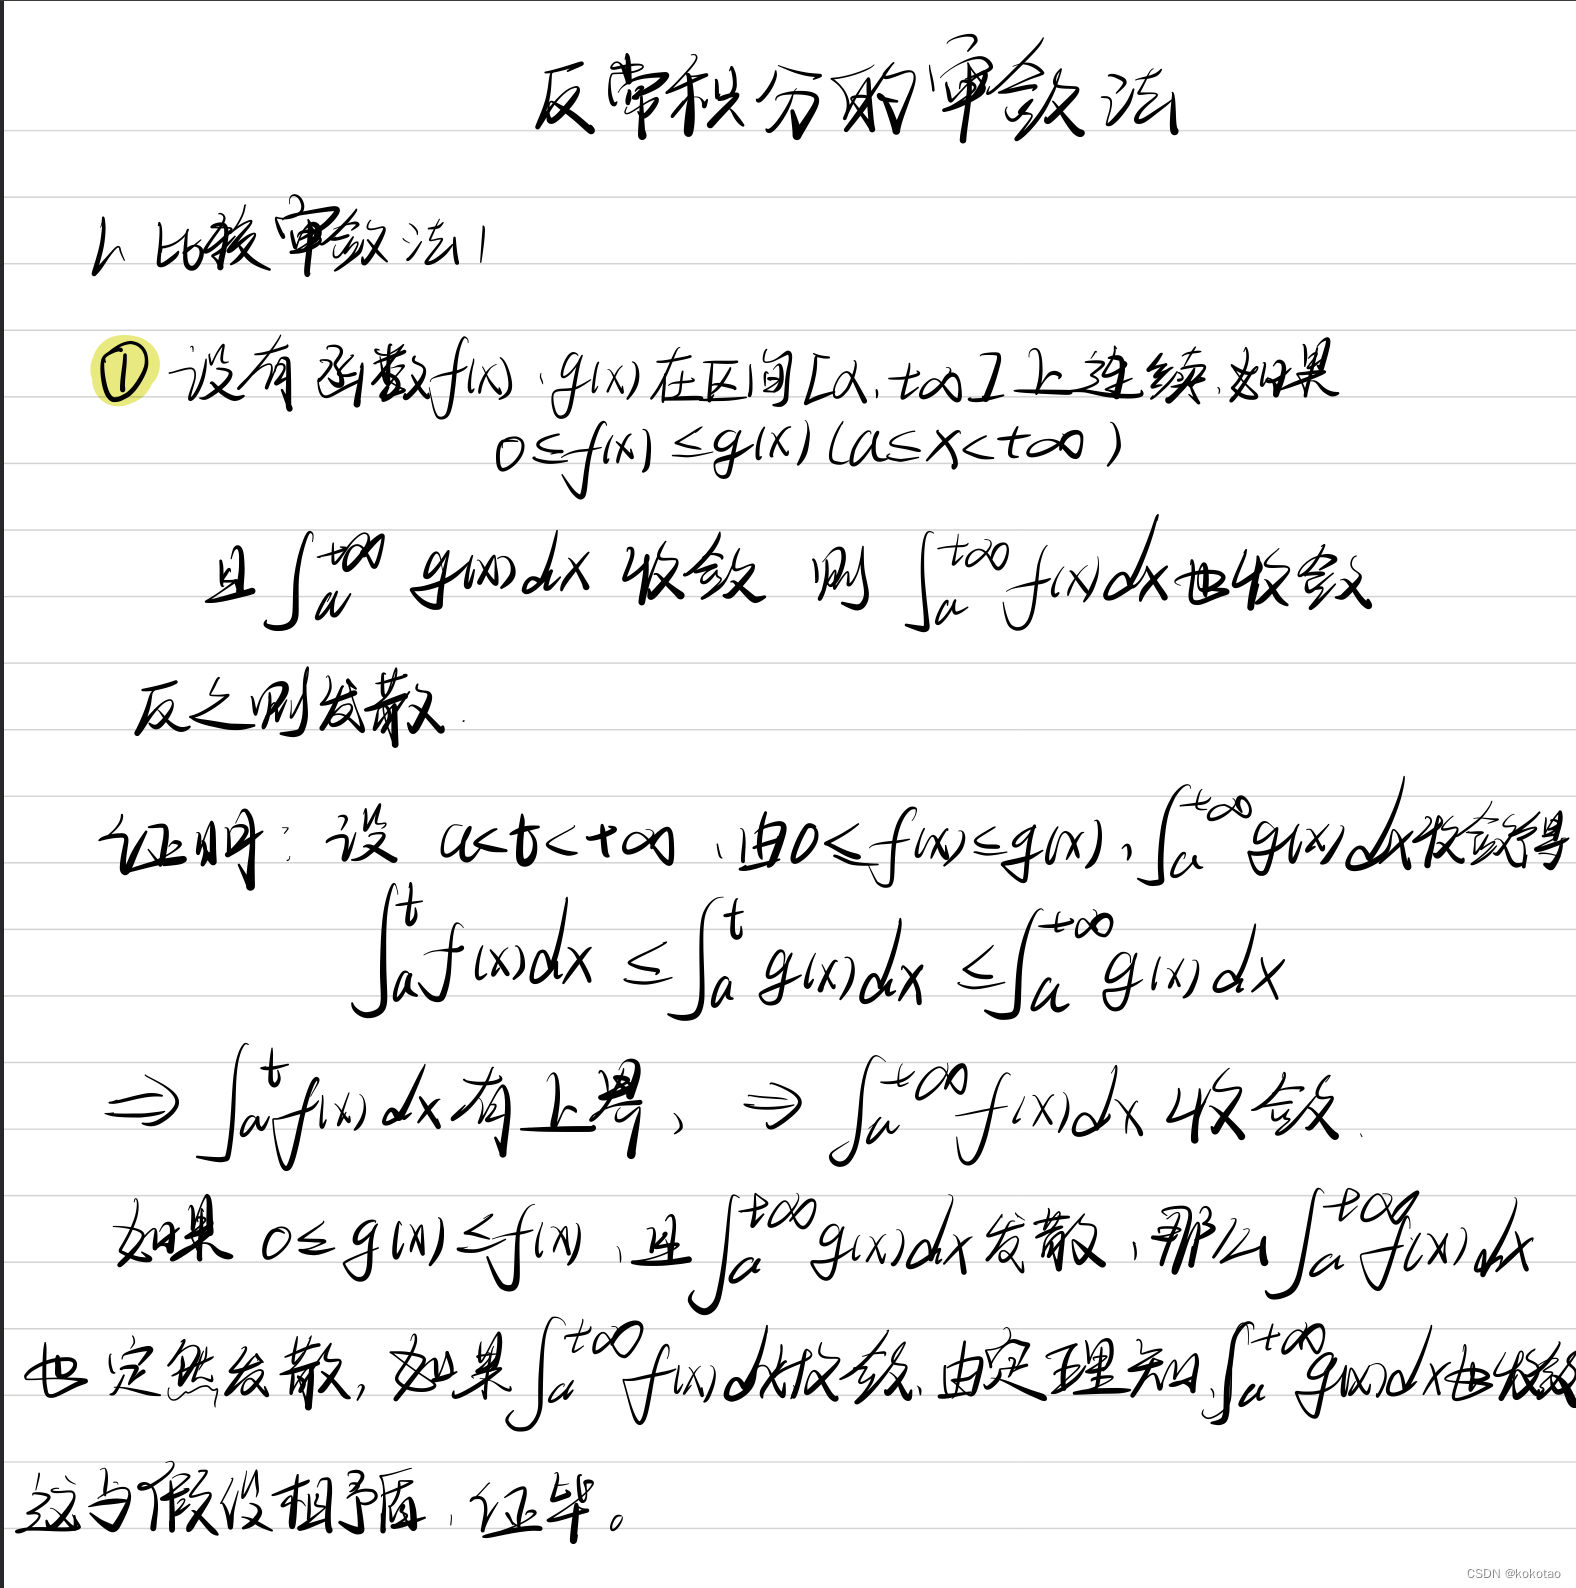 反常积分的审敛法
1. 比较审敛法1
① 设有函数f(x)、g(x)在区间[a,+∞]上连续,如果
0≤f(x)≤g(x)(a≤x<+∞)
且∫ₐ^{+∞} g(x)dx 收敛 则 ∫ₐ^{+∞} f(x)dx也收敛
反之则发散.
证明:设 a<t<+∞,由0≤f(x)≤g(x),∫ₐ^{+∞} g(x)dx收敛得
∫ₐ^t f(x)dx ≤ ∫ₐ^t g(x)dx ≤ ∫ₐ^{+∞} g(x)dx
⇒ ∫ₐ^t f(x)dx有上界, ⇒ ∫ₐ^{+∞} f(x)dx 收敛.
如果 0≤g(x)≤f(x),且∫ₐ^{+∞} g(x)dx发散,那么∫ₐ^{+∞} f(x)dx
也定然发散,如果∫ₐ^{+∞} f(x)dx收敛,由定理知,∫ₐ^{+∞} g(x)dx也收敛
这与假设相矛盾,证毕。
CSDN @kokotao